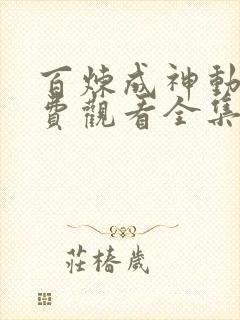 百煉成神動
費觀看全集
莊椿歲